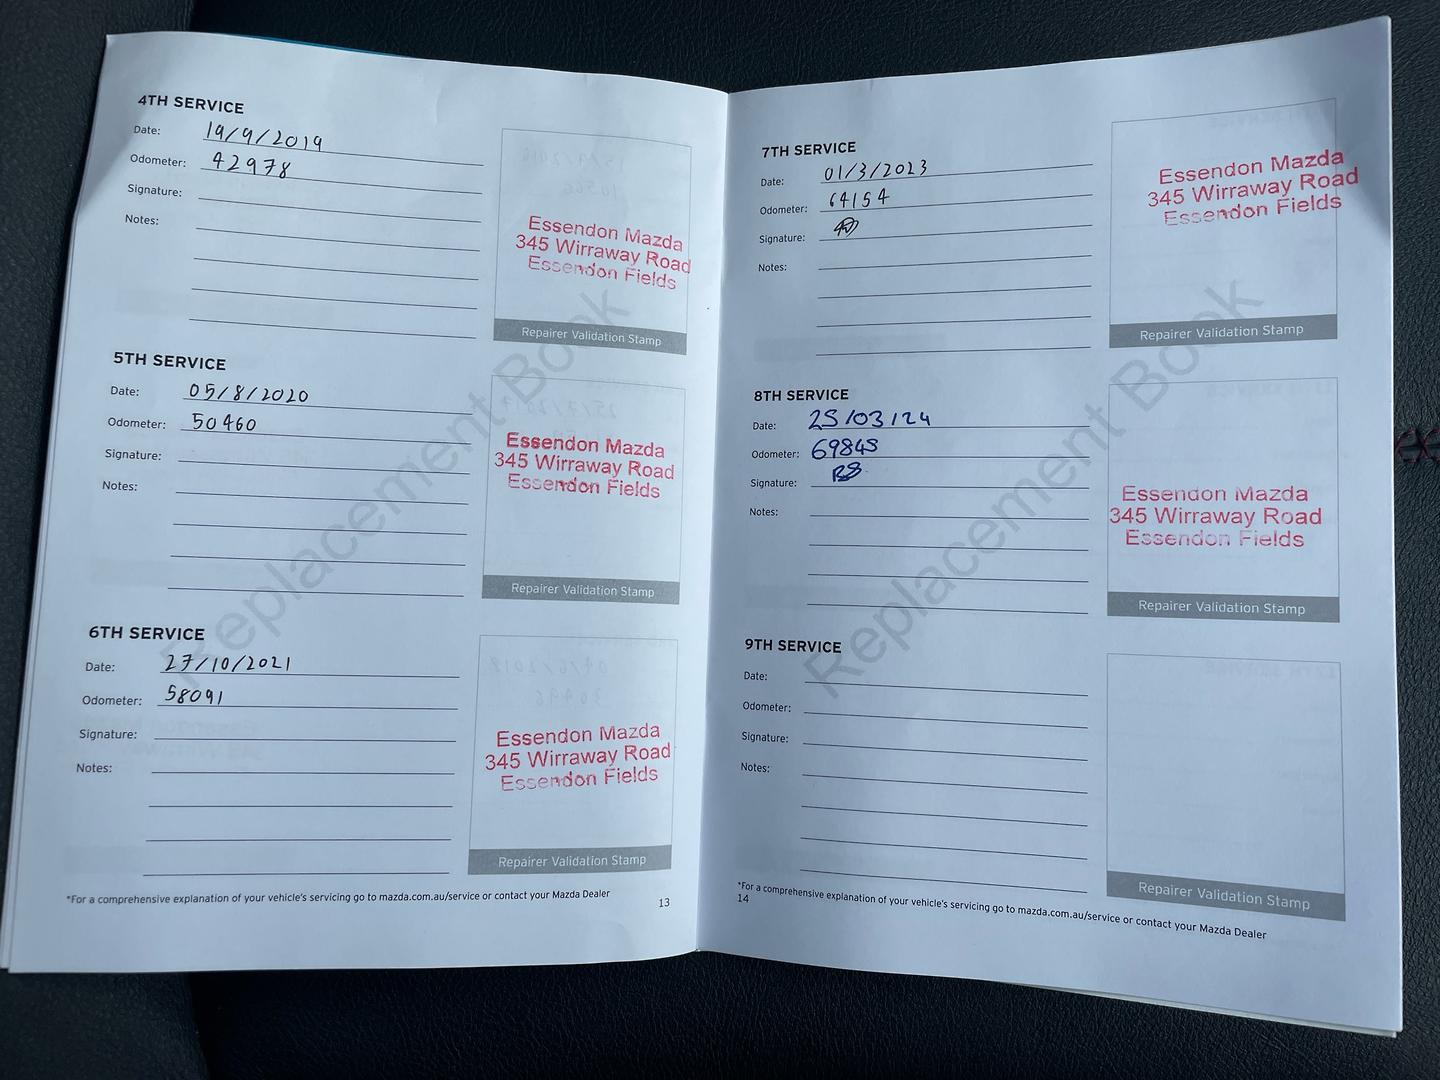 4TH SERVICE
Date: 19/9/2019
Odometer: 42978
Signature:
Notes:
Essendon Mazda
345 Wirraway Road
Essendon Fields
Repairer Validation Stamp
5TH SERVICE
Date: 05/8/2020
Odometer: 50460
Signature:
Notes:
Essendon Mazda
345 Wirraway Road
Essendon Fields
Repairer Validation Stamp
6TH SERVICE
Date: 27/10/2021
Odometer: 58091
Signature:
Notes:
Essendon Mazda
345 Wirraway Road
Essendon Fields
Repairer Validation Stamp
*For a comprehensive explanation of your vehicle's servicing go to mazda.com.au/service or contact your Mazda Dealer
13
Replacement Book
7TH SERVICE
Date: 01/3/2023
Odometer: 64154
Signature:
Notes:
Essendon Mazda
345 Wirraway Road
Essendon Fields
Repairer Validation Stamp
8TH SERVICE
Date: 25/03/24
Odometer: 69845
Signature:
Notes:
Essendon Mazda
345 Wirraway Road
Essendon Fields
Repairer Validation Stamp
9TH SERVICE
Date:
Odometer:
Signature:
Notes:
Repairer Validation Stamp
*For a comprehensive explanation of your vehicle's servicing go to mazda.com.au/service or contact your Mazda Dealer
14
Replacement Book